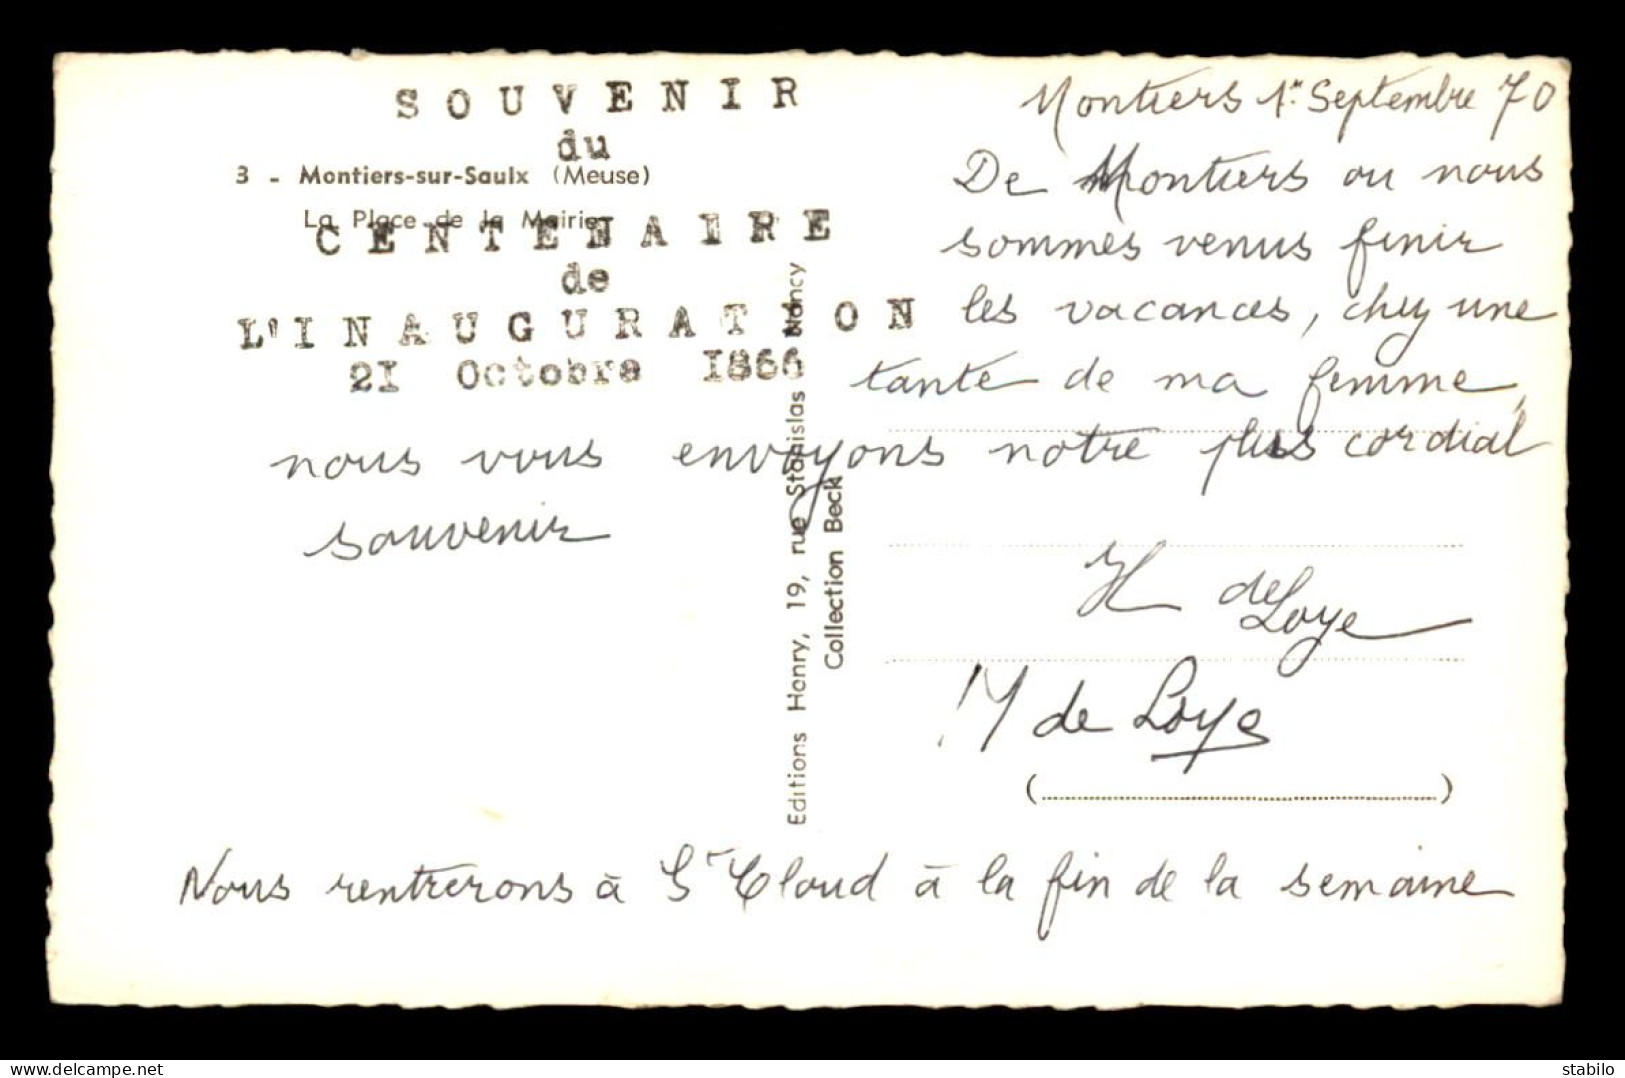 SOUVENIR
du
3 - Montiers-sur-Saulx (Meuse)
La Place de la Mairie
CENTENAIRE
de
L'INAUGURATION
21 Octobre 1866
Montiers 1er Septembre 70
De Montiers ou nous
sommes venus finir
les vacances, chez une
tante de ma femme,
nous vous envoyons notre plus cordial
souvenir
H de Loye
M de Loye
(........................)
Nous rentrerons à St Cloud à la fin de la semaine
Editions Henry, 19, rue Stanislas Nancy
Collection Beck
delcampe.net
stabilo